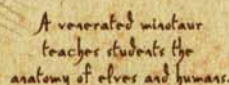 A venerated minotaur
teaches students the
anatomy of elves and humans.